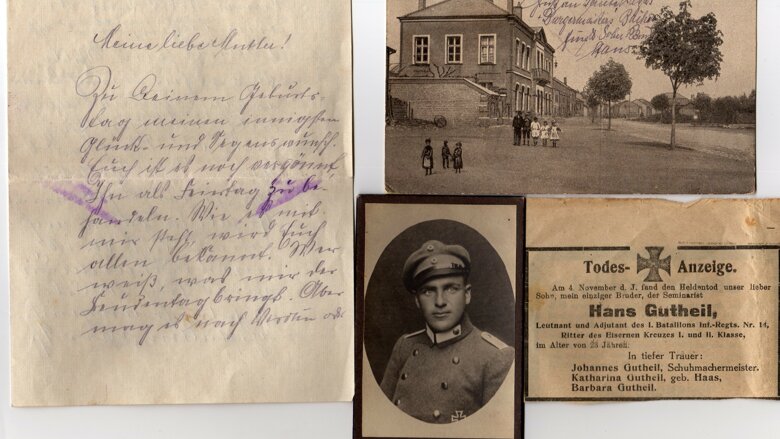 Meine liebe Mutter!
Zu Deinem Geburts-
tag meinen innigsten
Glück- und Segenswunsch.
Euch ist es noch vergönnt,
Ihn als Feiertag zu be-
handeln. Wie es mit
mir steht, wird Euch
allen bekannt. Wer
weiß, was mir der
bringt. Aber
mag es nach
Hans
Todes- Anzeige.
Am 4. November d. J. fand den Heldentod unser lieber
Sohn, mein einziger Bruder, der Seminarist
Hans Gutheil,
Leutnant und Adjutant des I. Bataillons Inf.-Regts. Nr. 14,
Ritter des Eisernen Kreuzes I. und II. Klasse,
im Alter von 23 Jahren.
In tiefer Trauer:
Johannes Gutheil, Schuhmachermeister.
Katharina Gutheil, geb. Haas,
Barbara Gutheil.